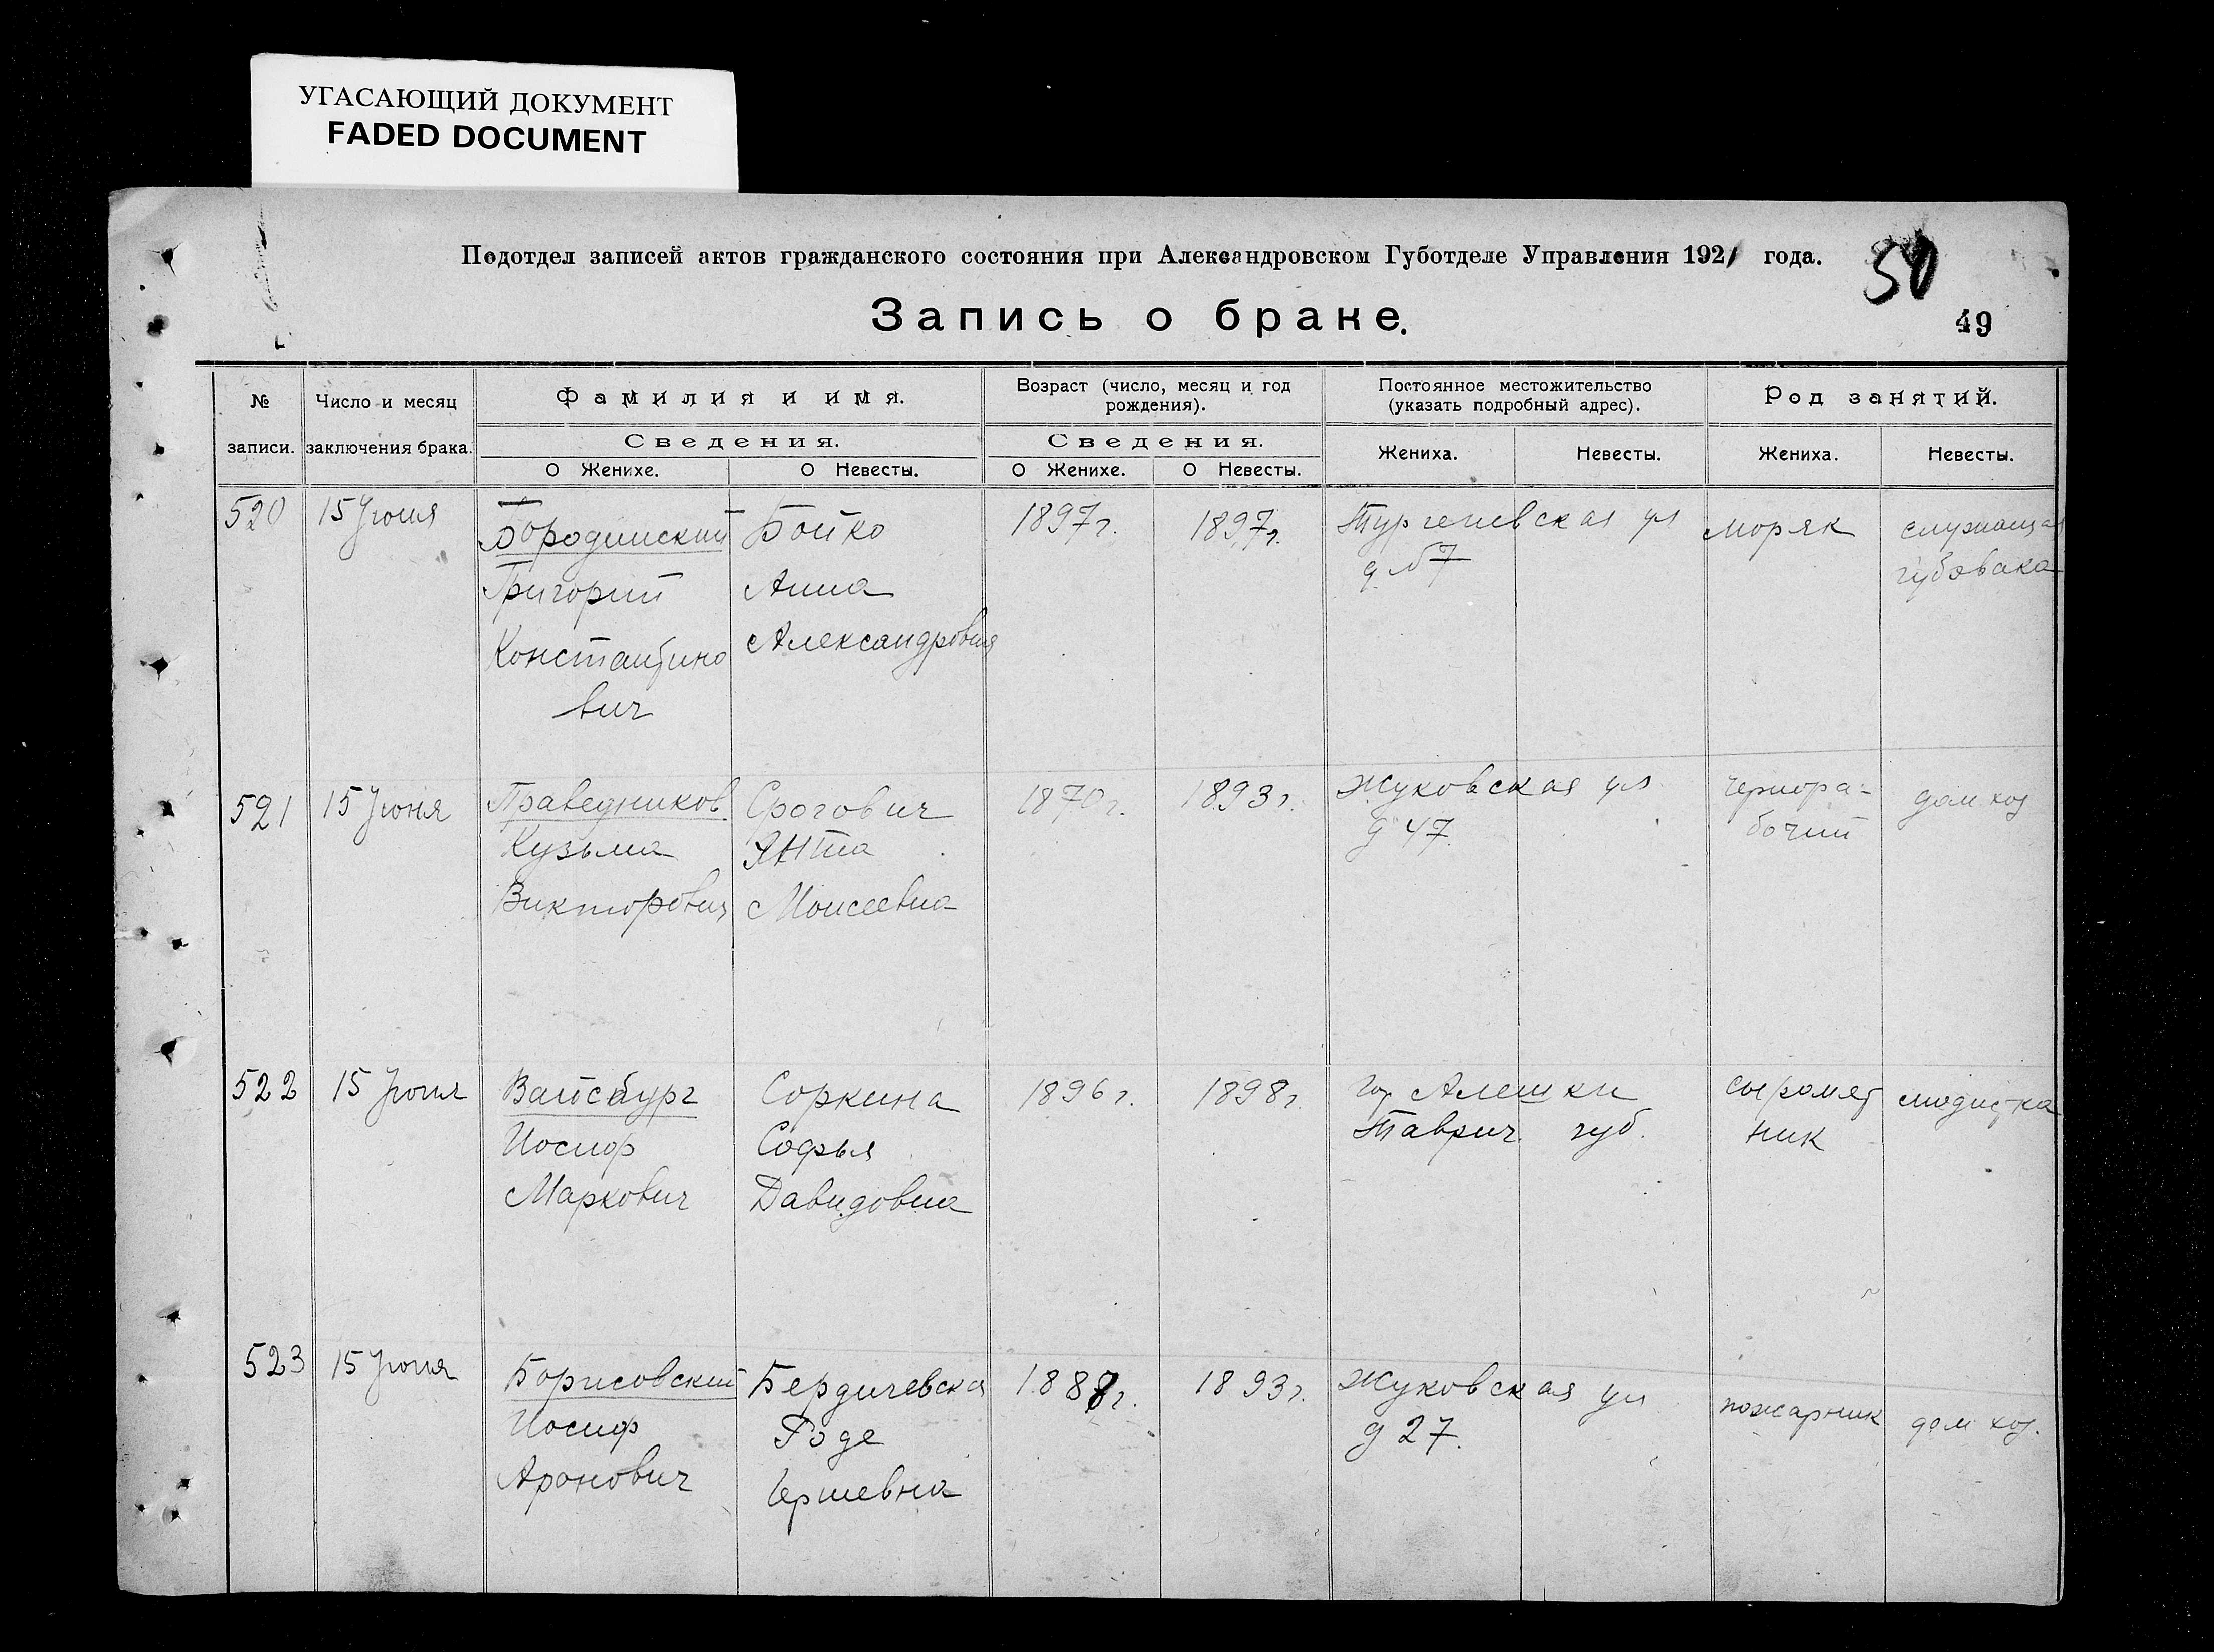 УГАСАЮЩИЙ ДОКУМЕНТ
FADED DOCUMENT
Подотдел записей актов гражданского состояния при Александровском Губотделе Управления 1921 года.
50
Запись о браке.
49
№ записи.
Число и месяц заключения брака.
Фамилия и имя.
Сведения.
О Женихе.
О Невесты.
Возраст (число, месяц и год рождения).
Сведения.
О Женихе.
О Невесты.
Постоянное местожительство (указать подробный адрес).
Жениха.
Невесты.
Род занятий.
Жениха.
Невесты.
520
15 Июня
Бородинский
Григорий
Константино
вич
Бойко
Анна
Александровна
1897 г.
1897 г.
Тургеневская ул
д №7
моряк
служащая
521
15 Июня
Праведников
Кузьма
Викторович
Срогович
Янта
Моисеевна
1870 г.
1893 г.
Жуковская ул
д 47.
чернора-
бочий
дом хоз
522
15 Июня
Вайсбург
Иосиф
Маркович
Соркина
Софья
Давидовна
1896 г.
1898 г.
гор Алешки
Таврич. губ.
сыромят
ник
модистка
523
15 Июня
Борисовский
Иосиф
Аронович
Бердичевская
Гершевна
1888 г.
1893 г.
Жуковская ул
д 27.
пожарник
дом хоз.